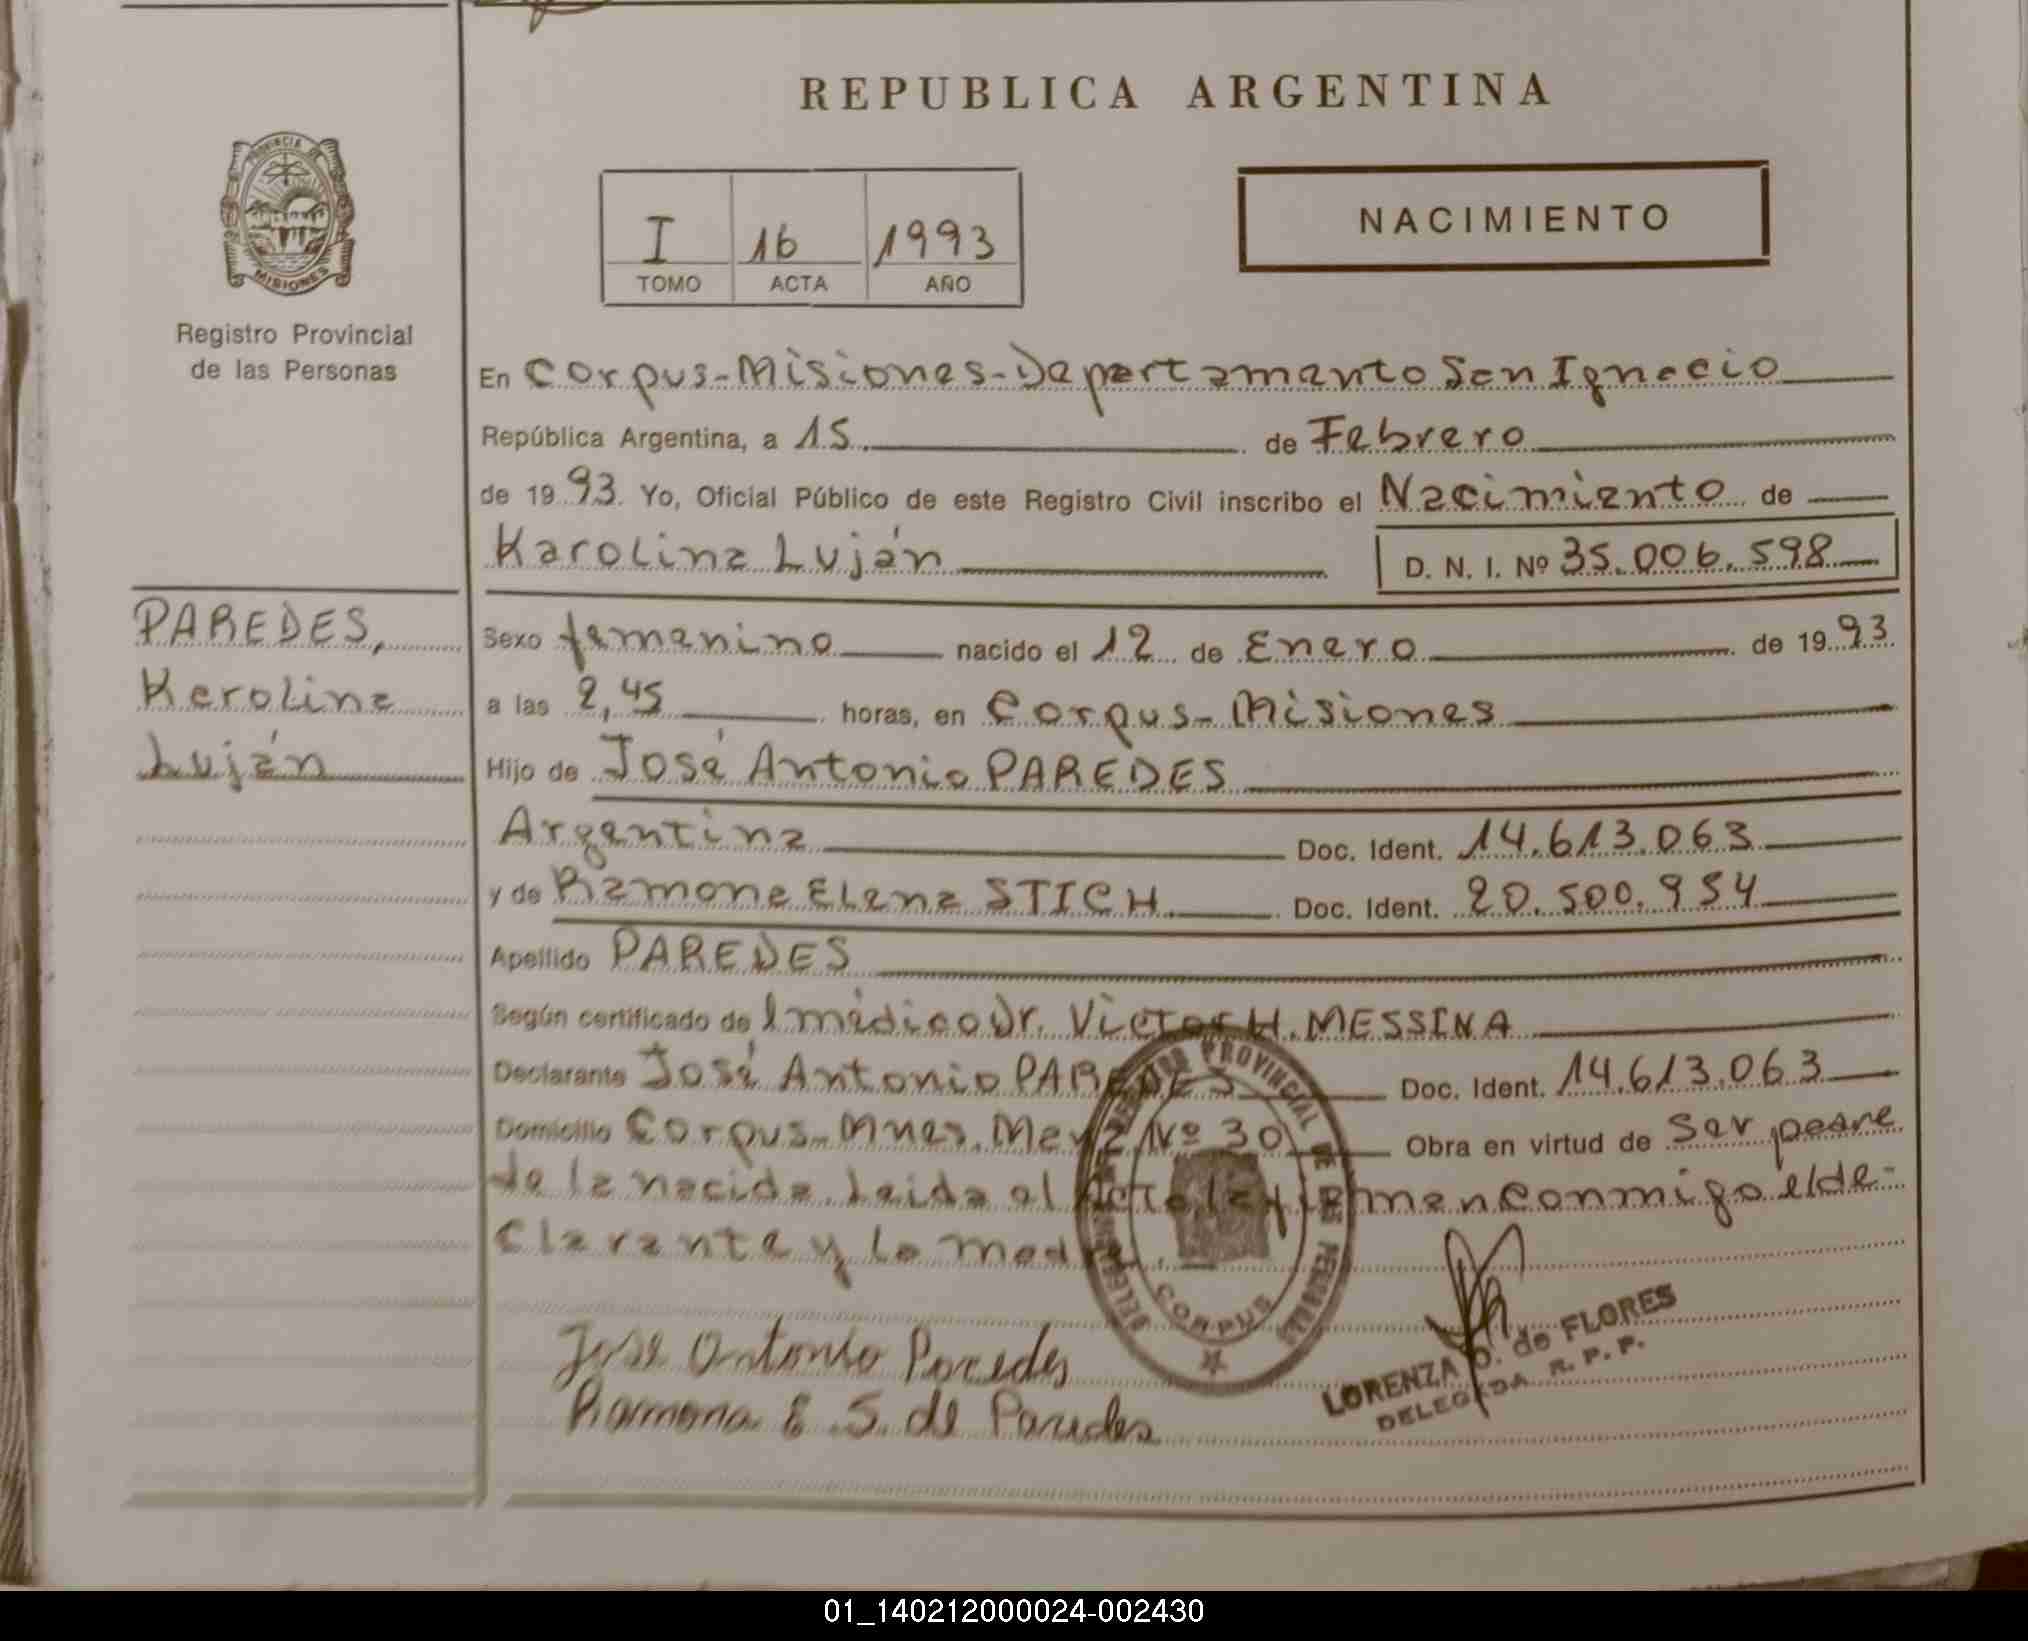 REPUBLICA ARGENTINA
PROVINCIA DE
MISIONES
Registro Provincial
de las Personas
I 16 1993
TOMO ACTA AÑO
NACIMIENTO
En Corpus-Misiones-Departamento San Ignacio
República Argentina, a 15 de Febrero
de 1993. Yo, Oficial Público de este Registro Civil inscribo el Nacimiento de
Karolina Luján D. N. I. Nº 35.006.598
PAREDES,
Karolina
Luján
Sexo femenino nacido el 12 de Enero de 1993
a las 2,45 horas, en Corpus-Misiones
Hijo de José Antonio PAREDES
Argentina Doc. Ident. 14.613.063
y de Ramona Elena STICH. Doc. Ident. 20.500.954
Apellido PAREDES
Según certificado del médico Dr. Victor H. MESSINA
Declarante José Antonio PAREDES Doc. Ident. 14.613.063
Domicilio Corpus-Mnes. Nº 30 Obra en virtud de ser padre
de la nacida. Leida el Acta, la firman conmigo el de-
clarante y la madre.
PROVINCIAL DE LAS PERSONAS
CORPUS
Jose Antonio Paredes
Ramona E. S. de Paredes
LORENZA D. de FLORES
DELEGADA R. P. P.
01_140212000024-002430